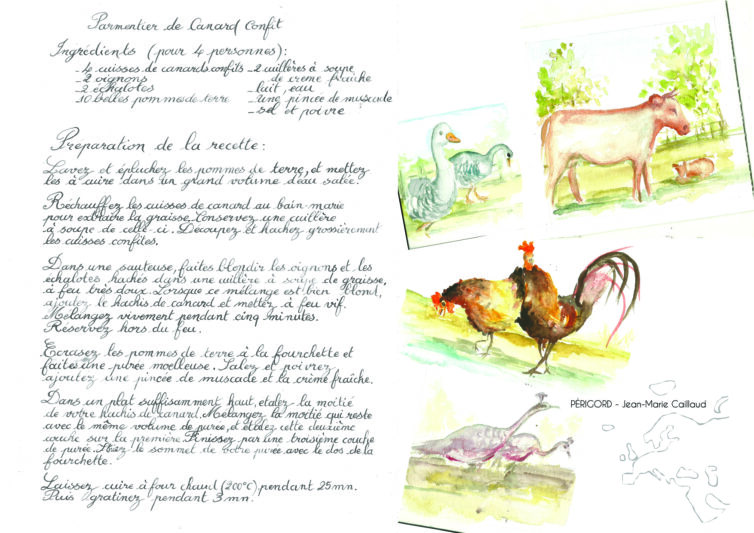 Parmentier de Canard Confit
Ingrédients (pour 4 personnes):
- 4 cuisses de canards confits
- 2 oignons
- 2 échalotes
- 10 belles pommes de terre
- 2 cuillères à soupe
de crème fraîche
- lait, eau
- une pincée de muscade
- sel et poivre
Préparation de la recette:
Lavez et épluchez les pommes de terre, et mettez
les à cuire dans un grand volume d'eau salée.
Réchauffez les cuisses de canard au bain-marie
pour extraire la graisse. Conservez une cuillère
à soupe de celle-ci. Découpez et hachez grossièrement
les cuisses confites.
Dans une sauteuse, faites blondir les oignons et les
échalotes hachés dans une cuillère à soupe de graisse,
à feu très doux. Lorsque ce mélange est bien blond,
ajoutez le hachis de canard et mettez à feu vif.
Mélangez vivement pendant cinq minutes.
Réservez hors du feu.
Ecrasez les pommes de terre à la fourchette et
faites une purée moelleuse. Salez et poivrez
ajoutez une pincée de muscade et la crème fraîche.
Dans un plat suffisamment haut, étalez la moitié
de votre hachis de canard. Mélangez la moitié qui reste
avec le même volume de purée, et étalez cette deuxième
couche sur la première. Finissez par une troisième couche
de purée. Striez le sommet de votre purée avec le dos de la
fourchette.
Laissez cuire à four chaud (200°C) pendant 25mn.
Puis gratinez pendant 3mn.
PÉRIGORD - Jean-Marie Caillaud